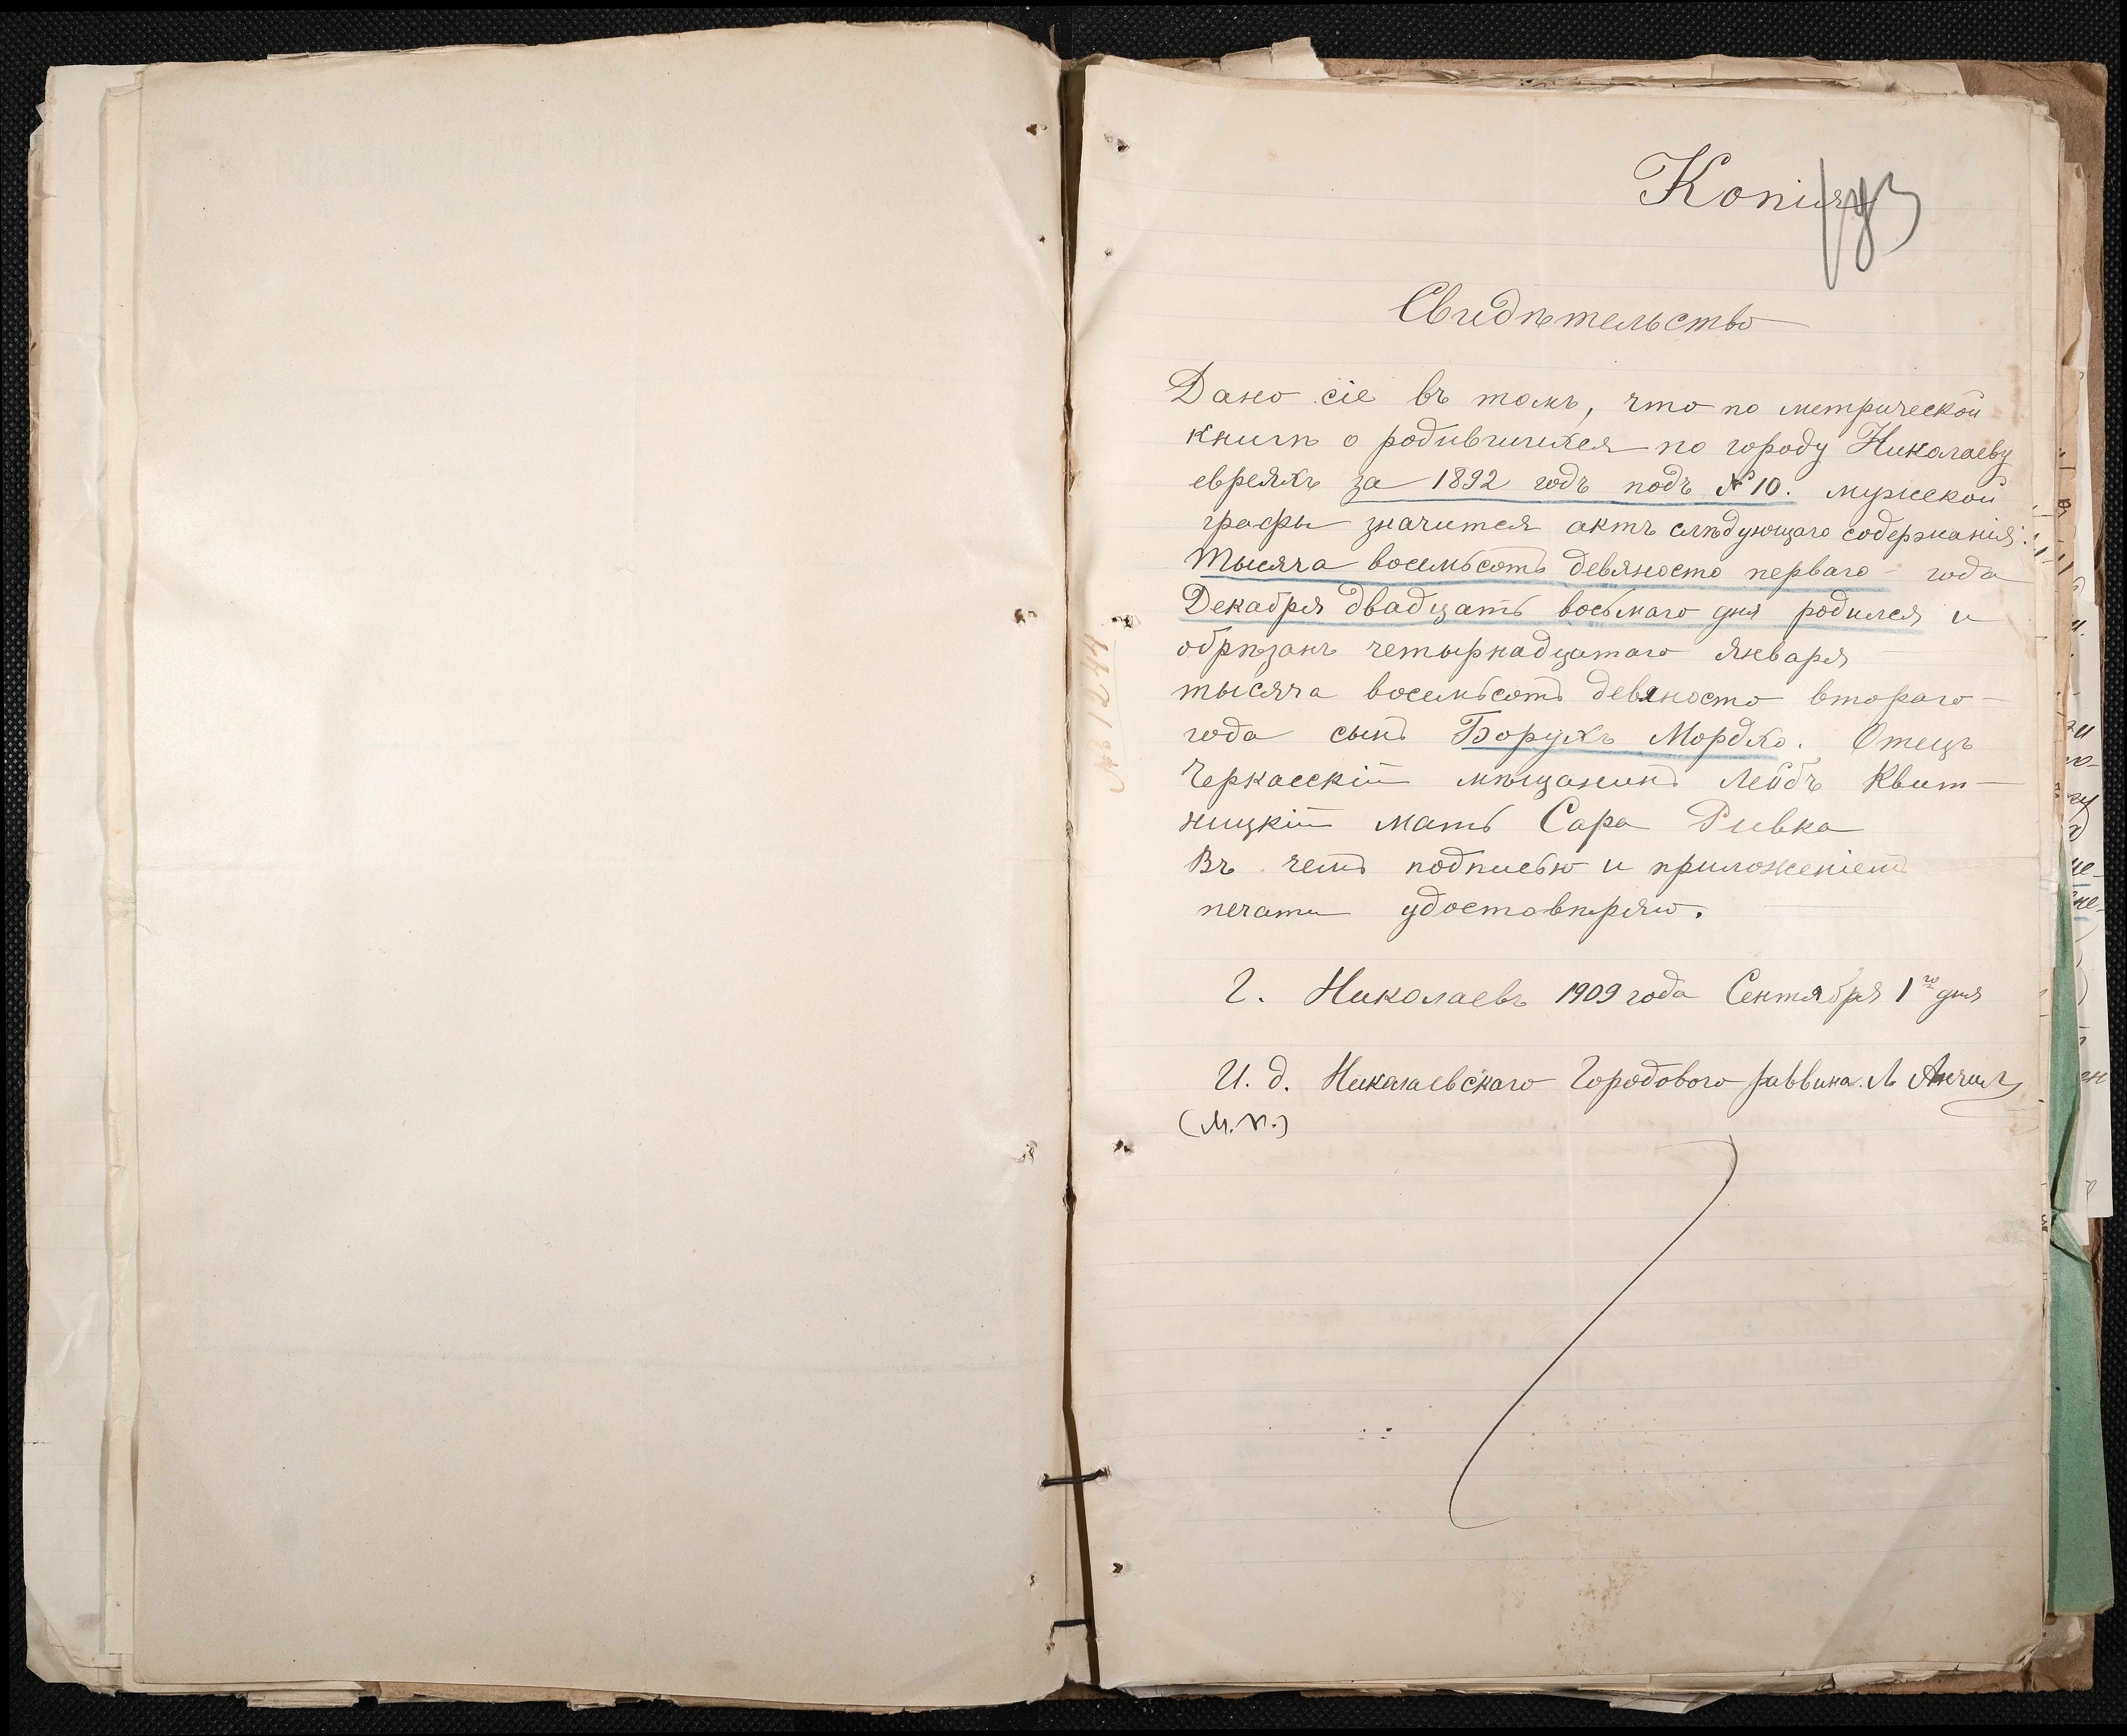 Копія
183
Свидѣтельство
Дано сіе въ томъ, что по метрической
книгѣ о родившихся по городу Николаеву
евреяхъ за 1892 годъ подъ № 10. мужской
графы значится актъ слѣдующаго содержанія:
Тысяча восемьсотъ девяносто перваго года
Декабря двадцать восьмаго дня родился и
обрѣзанъ четырнадцатаго Января
тысяча восемьсотъ девяносто втораго
года сынъ Борухъ Мордко. Отецъ
Черкасскій мѣщанинъ Лейбъ Квит-
ницкій мать Сара Ривка
Въ чемъ подписью и приложеніемъ
печати удостовѣряю.
Г. Николаевъ 1909 года Сентября 1го дня
И. д. Николаевскаго Городового раввина. Л
(М.П.)
№ 1244